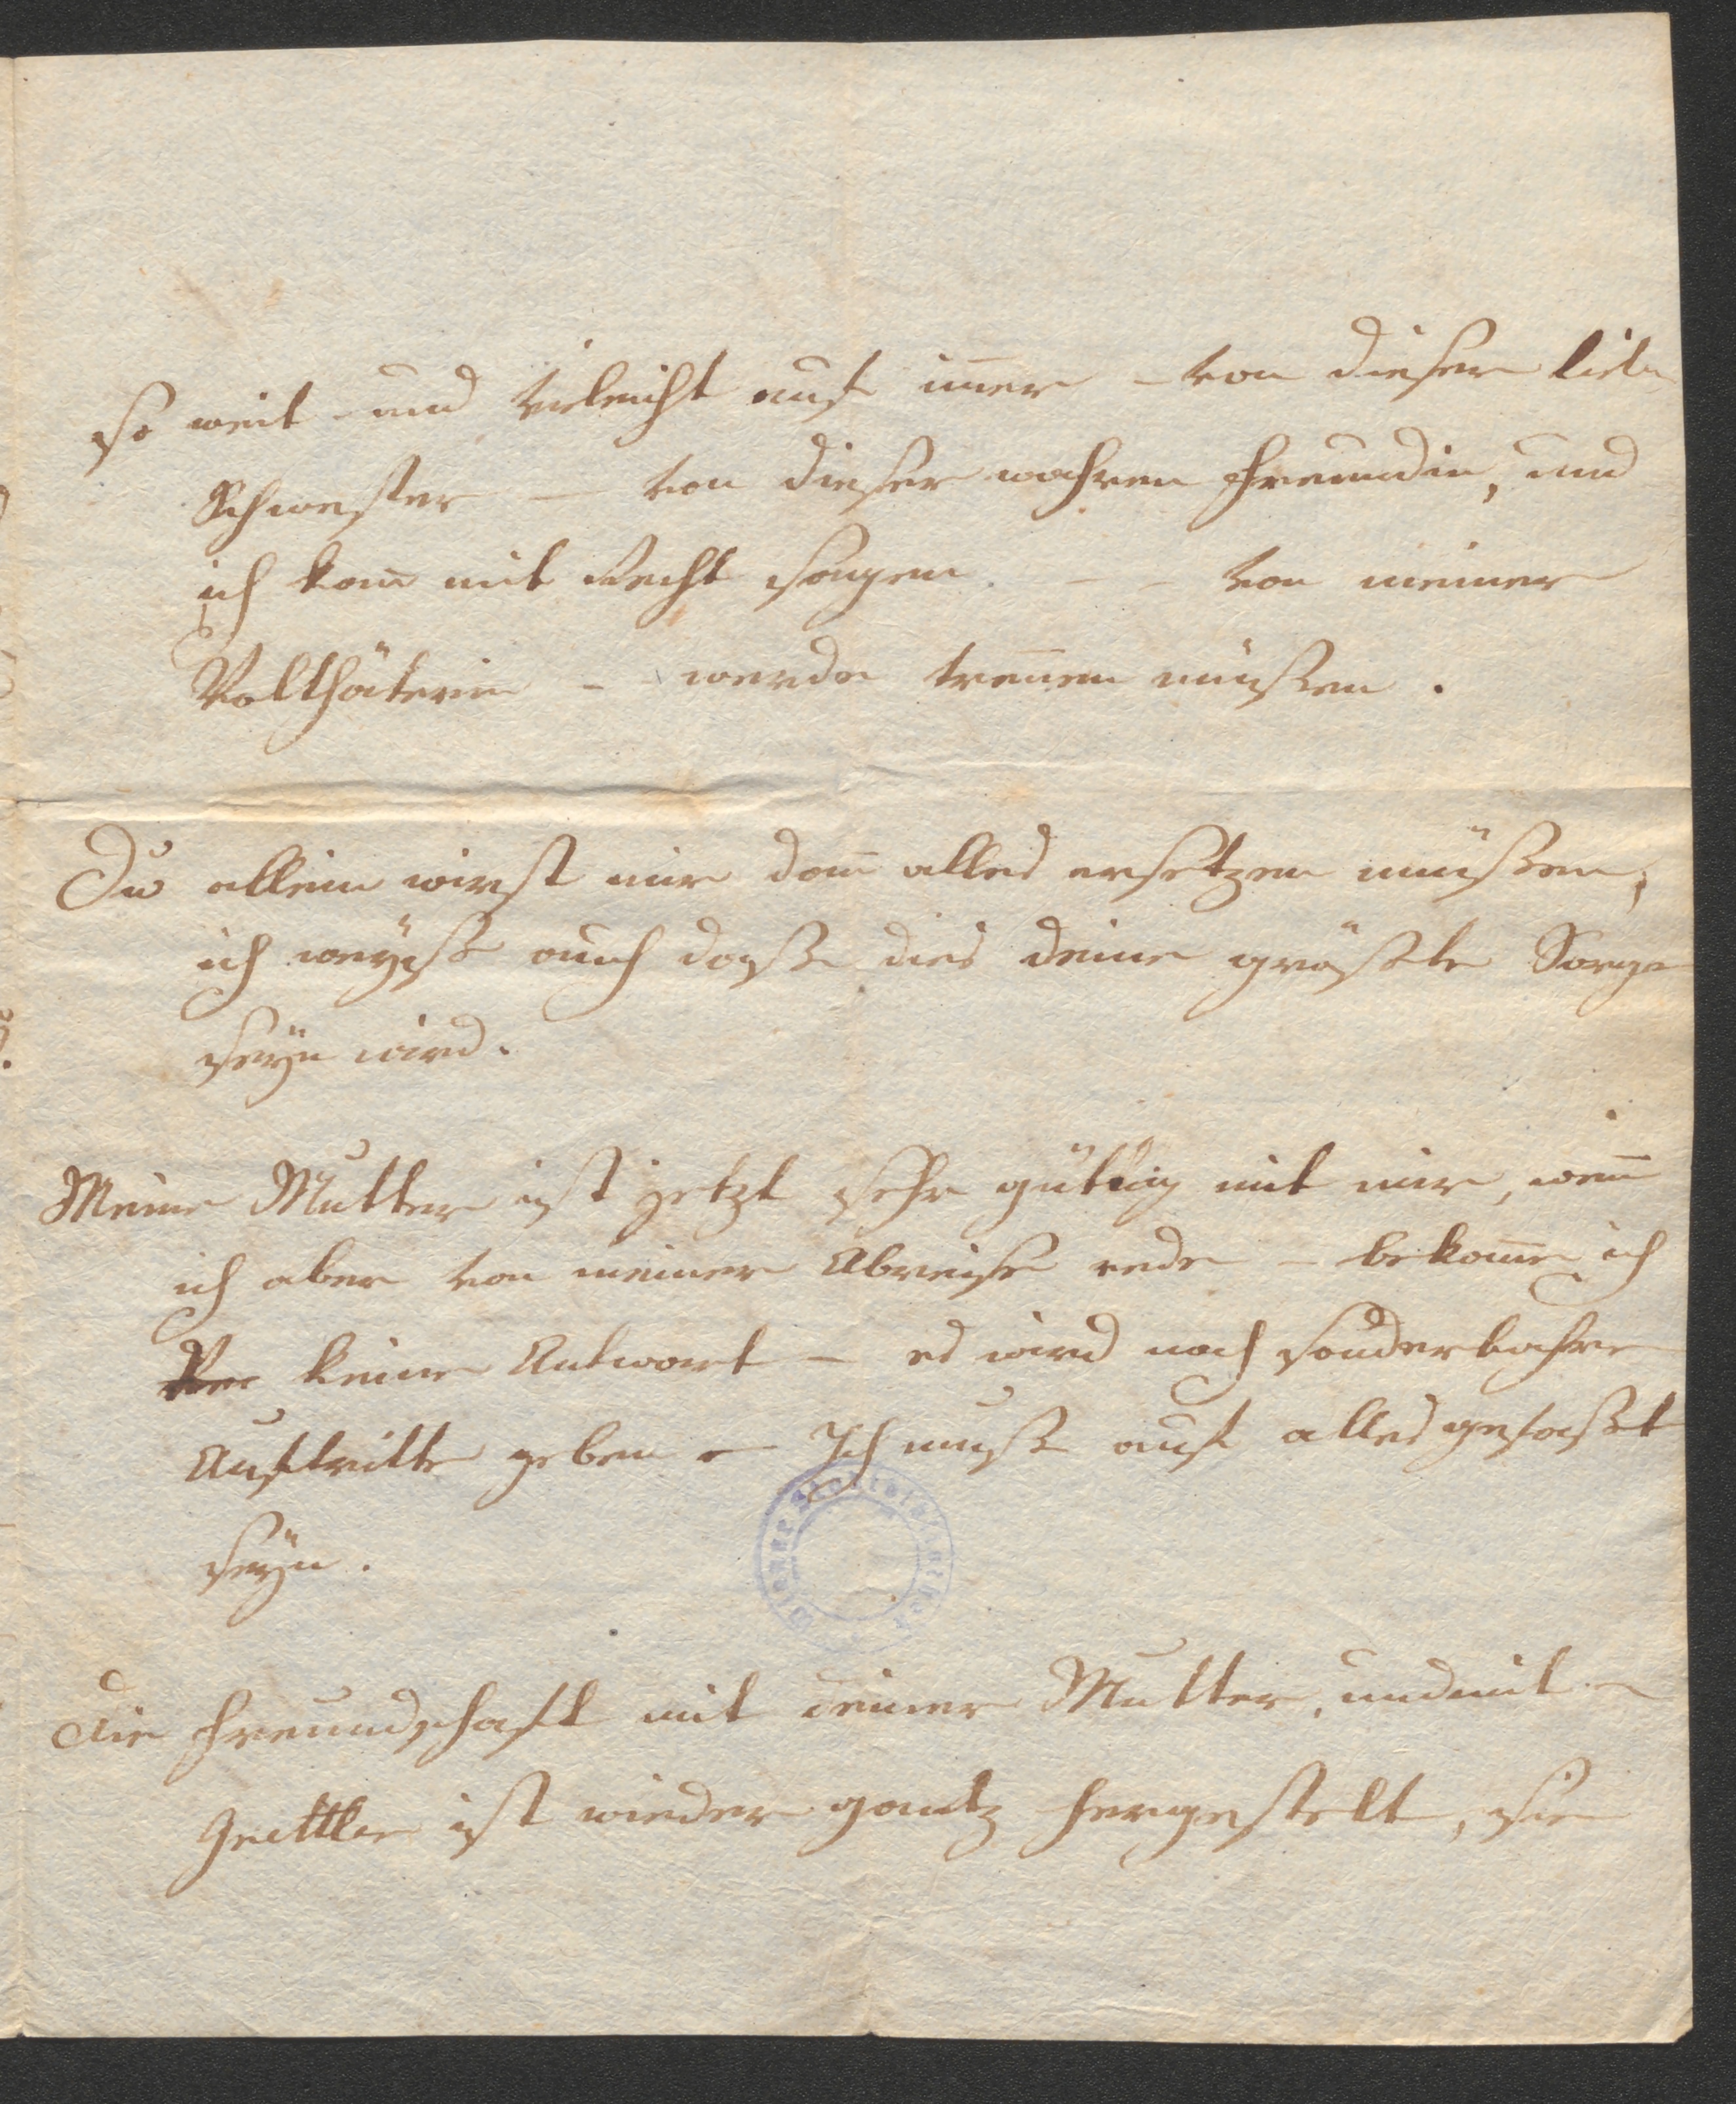 so weit und vieleicht auf im̅er – von dieser lieben
Schwester – von dieser wahren Freundin, und
ich kan̅ mit Recht sagen – – von meiner
Wolthäterin – – werde tren̅en müßen.
Du allein wirst mir dan̅ alles ersetzen müßen,
ich weyß auch daß dies deine größte Sorge
seÿn wird.
Meine Mutter ist jetzt sehr gütig mit mir, wen̅
ich aber von meiner Abreise rede – bekom̅e ich
keine Antwort – es wird noch sonderbahre
Auftritte geben – Ich muß auf alles gefaßt
seÿn.
Wiener Stadtbibliothek
die Freundschaft mit deiner Mutter, und mit
ist wieder gantz hergestelt, sie